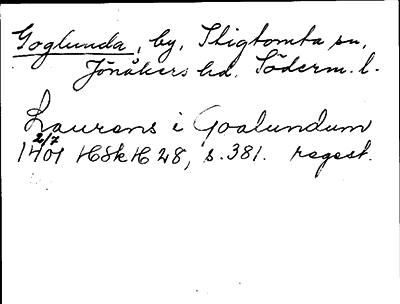 Goglunda, by, Stigtomta sn,
Jönåkers hd. Söderm. l.
Laurens i Goalundum
2/7
1401 HSkH 28, s. 381. regest.